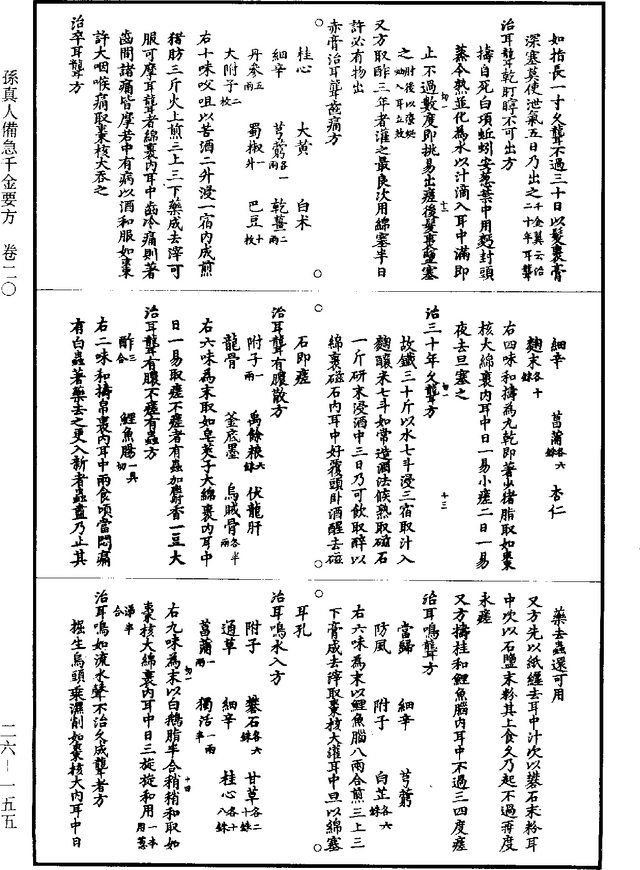 如指長一寸久聾不過三十日以髮裹膏
深塞莫使泄氣五日乃出之千金翼云治二十年耳聾
治耳聾乾耵聹不可出方
擣自死白項蚯蚓安葱葉中用麪封頭
蒸令熟並化為水以汁滴入耳中滿即
止不過數度即挑易出瘥後髮裹鹽塞
之
又方取酢三年者灌之最良次用綿塞半日
許必有物出
赤膏治耳聾齒痛方
桂心 大黃 白术
細辛 芎藭各一兩 乾薑二兩
丹參五兩 蜀椒一升 巴豆十枚
大附子二枚
右十味㕮咀以苦酒二升浸一宿內成煎
猪肪三斤火上煎三上三下藥成去滓可
服可摩耳聾者綿裹內耳中齒冷痛則著
齒間諸痛皆摩若中有病以酒和服如棗
許大咽喉痛取棗核大吞之
治卒耳聾方
細辛 菖蒲各六銖 杏仁
麴末各十銖
右四味和擣為丸乾即著少猪脂取如棗
核大綿裹內耳中日一易小瘥二日一易
夜去旦塞之
治三十年久聾方
故鐵三十斤以水七斗浸三宿取汁入
麴釀米七斗如常造酒法候熟取磁石
一斤研末浸酒中三日乃可飲取醉以
綿裹磁石內耳中好覆頭臥酒醒去磁
石即瘥
治耳聾有膿散方
附子一兩 禹餘糧六銖 伏龍肝
龍骨 釜底墨 烏賊骨各半兩
右六味為末取如皂莢子大綿裹內耳中
日一易取瘥不瘥者有蟲加麝香一豆大
治耳聾有膿不瘥有蟲方
酢三合 鯉魚腸一具切
右二味和擣帛裹內耳中兩食頃當悶痛
有白蟲著藥去之更入新者蟲盡乃止其
藥去蟲還可用
又方先以紙纏去耳中汁次以礬石末粉耳
中次以石鹽末粉其上食久乃起不過再度
永瘥
又方擣桂和鯉魚腦內耳中不過三四度瘥
治耳鳴聾方
當歸 細辛 芎藭
防風 附子 白芷各六銖
右六味為末以鯉魚腦八兩合煎三上三
下膏成去滓取棗核大灌耳中旦以綿塞
耳孔
治耳鳴水入方
附子 礬石各六銖 甘草各二十銖
通草 細辛 桂心各十八銖
菖蒲一兩 獨活一兩半
右九味為末以白鵝脂半合稍稍和取如
棗核大綿裹內耳中日三旋旋和用一本用葱涕半合
治耳鳴如流水聲不治久成聾者方
掘生烏頭乘濕削如棗核大內耳中日
孫真人備急千金要方 卷二〇
二六-一五五